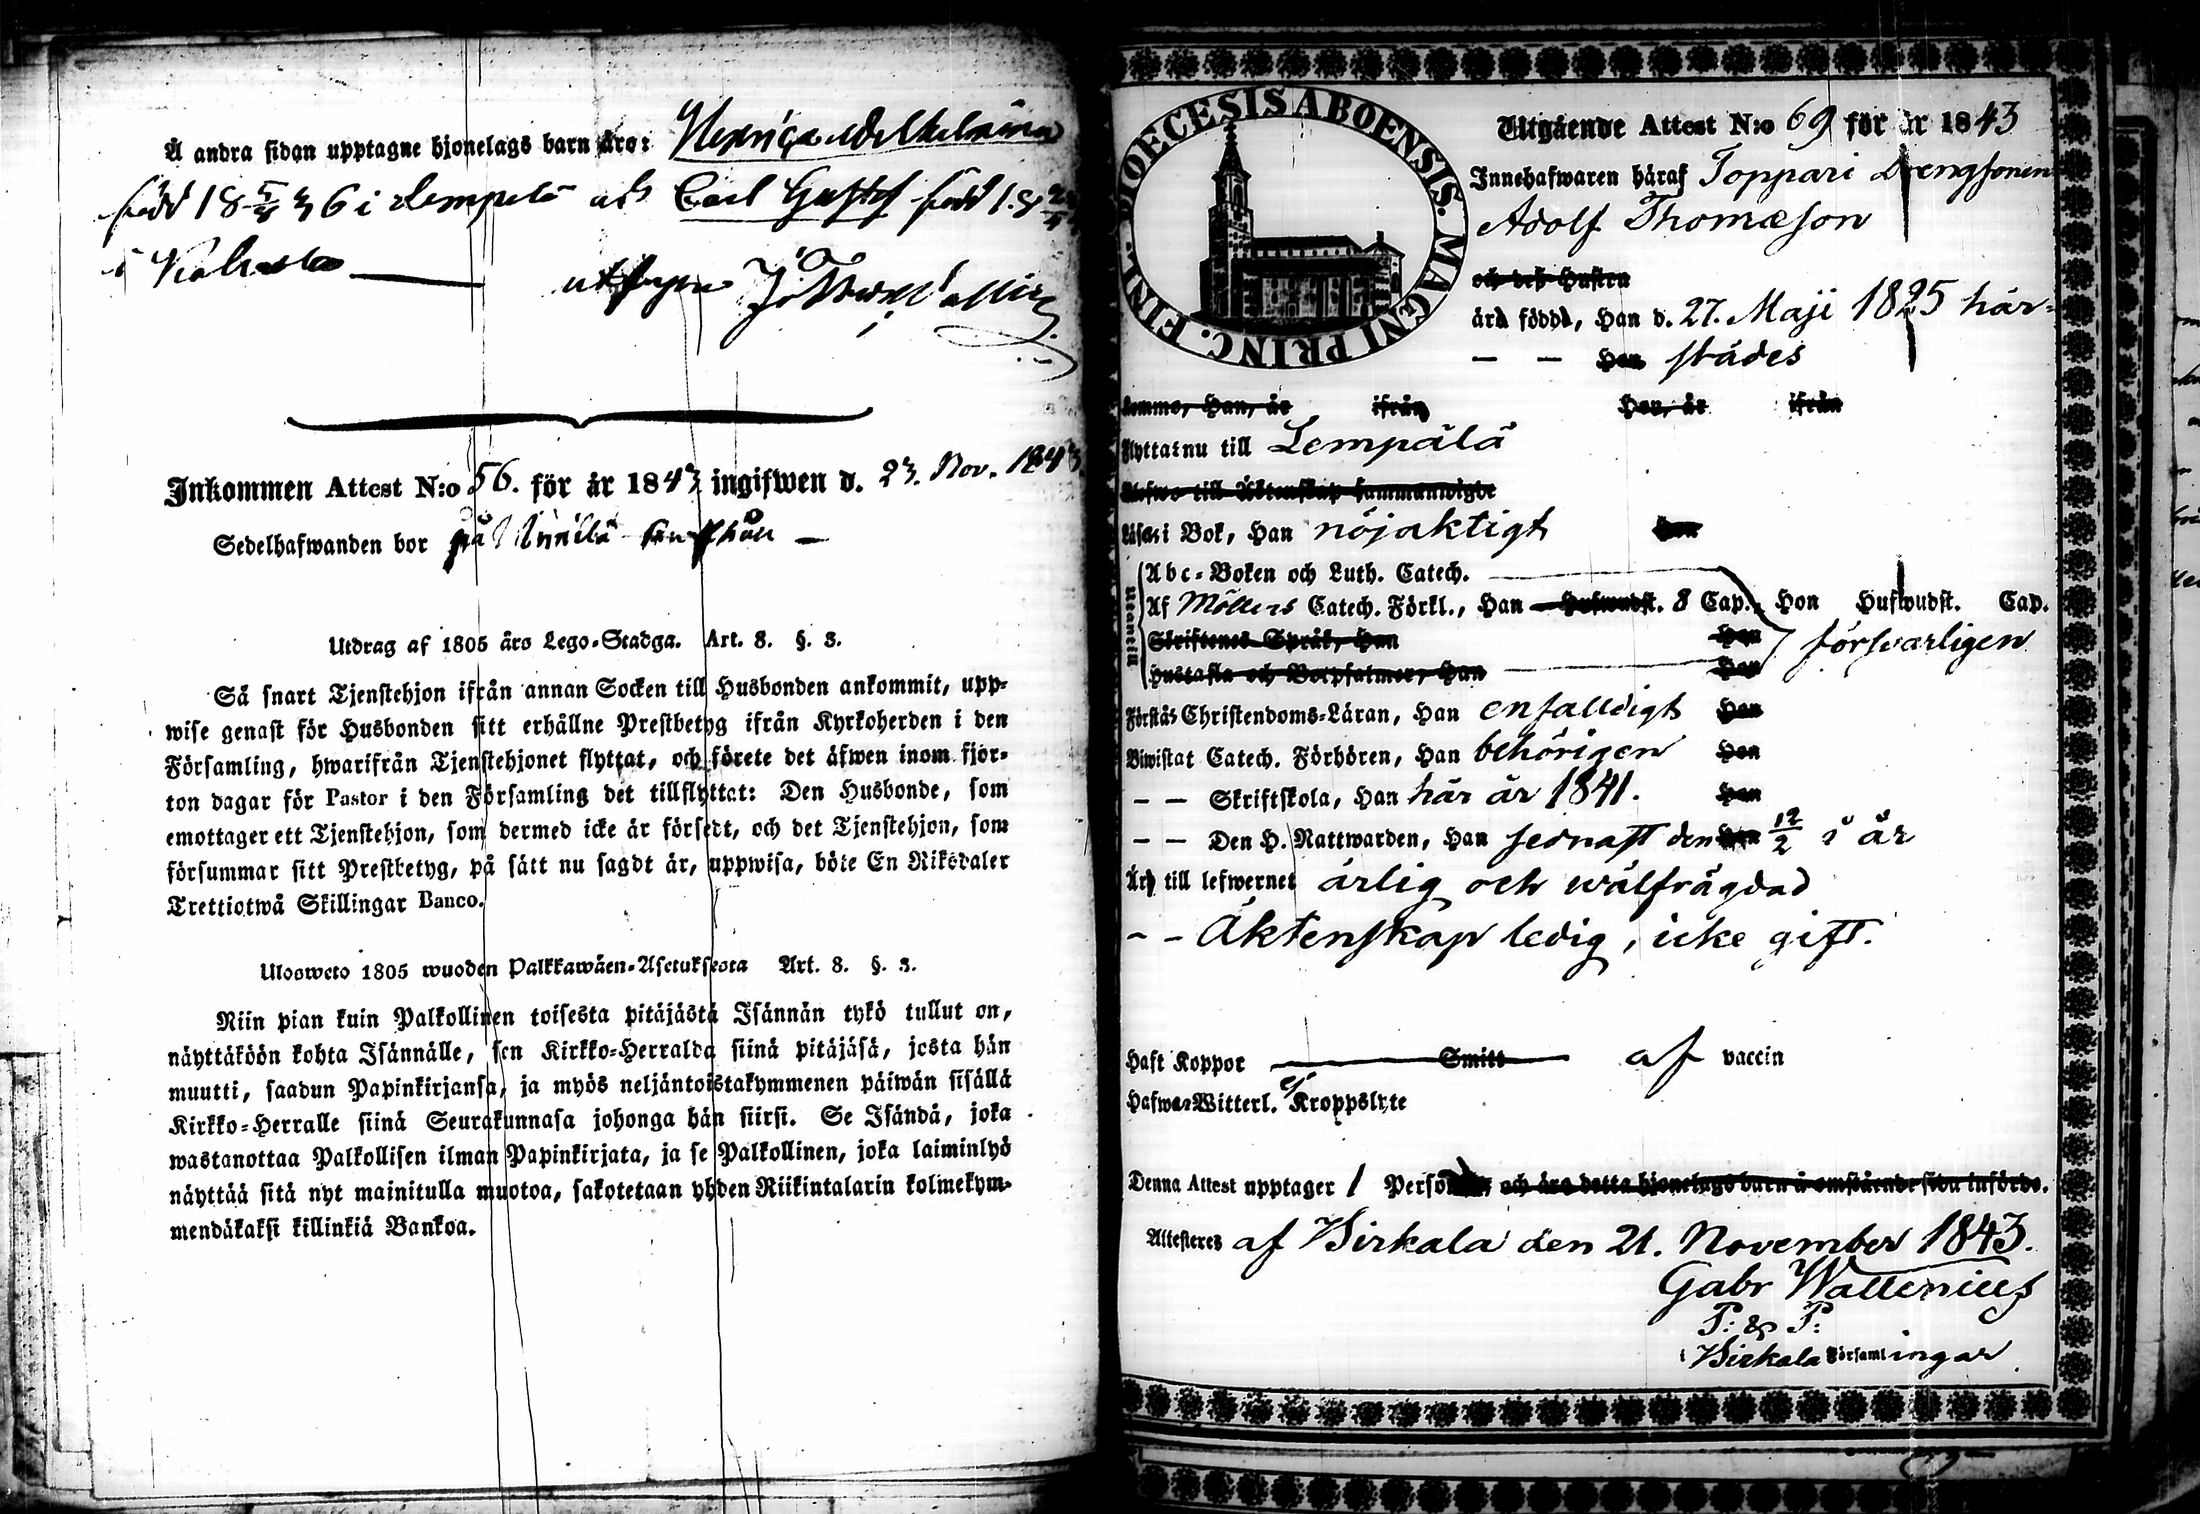 Å andra sidan upptagne hjonelags barn äro: Henrica Wilhelmina
född 18 5/4 36 i Lempälä och Carl Gustaf född 18
i
Inkommen Attest N:o 56. för år 1843 ingifwen d. 23. Nov. 1843.
Sedelhafwanden bor på
Utdrag af 1805 års Lego-Stadga. Art. 8. §. 3.
Så snart Tjenstehjon ifrån annan Socken till Husbonden ankommit, upp-
wise genast för Husbonden sitt erhållne Prestbetyg ifrån Kyrkoherden i den
Församling, hwarifrån Tjenstehjonet flyttat, och förete det äfwen inom fjor-
ton dagar för Pastor i den Församling det tillflyttat: Den Husbonde, som
emottager ett Tjenstehjon, som dermed icke är försedt, och det Tjenstehjon, som
försummar sitt Prestbetyg, på sätt nu sagdt är, uppwisa, böte En Riksdaler
Trettiotwå Skillingar Banco.
Ulosweto 1805 wuoden Palkkawäen-Asetuksesta Art. 8. §. 3.
Niin pian kuin Palkollinen toisesta pitäjästä Isännän tykö tullut on,
näyttäköön kohta Isännälle, sen Kirkko-Herralda siinä pitäjäsä, josta hän
muutti, saadun Papinkirjansa, ja myös neljäntoistakymmenen päiwän sisällä
Kirkko-Herralle siinä Seurakunnasa johonga hän siirsi. Se Isändä, joka
wastanottaa Palkollisen ilman Papinkirjata, ja se Palkollinen, joka laiminlyö
näyttää sitä nyt mainitulla muotoa, sakotetaan yhden Riikintalarin kolmekym-
mendäkaksi killinkiä Bankoa.
DIOECESIS ABOENSIS. MAGNI PRINC. FINL.
Utgående Attest N:o 69 för år 1843
Innehafwaren häraf Toppari Drengsonen
Adolf Thomæson
och deß Hustru
äro födde, Han d. 27. Maji 1825 här-
— — Hon städes
komne, Han, år ifrån Hon, år ifrån
Flyttat nu till Lempälä
Blefwo till Äktenskap sammanwigde
Läser i Bok, Han nöjaktigt Hon
Abc-Boken och Luth. Catech.
Utantill
Af Möllers Catech. Förkl., Han Hufwudst. 8 Cap., Hon Hufwudst. Cap.
Skriftenes Språk, Han Hon försvarligen
Hustafla och Botpsalmer, Han Hon
Förstår Christendoms-Läran, Han enfaldigt Hon
Biwistat Catech. Förhören, Han behörigen Hon
— — Skriftskola, Han här år 1841. Hon
— — Den H. Nattwarden, Han sednast den Hon 12/2 i år
Är till lefwernet ärlig och wälfrägdad
— — Äktenskap ledig, icke gift.
Haft Koppor Smitt af vaccin
Hafwer Witterl. ej Kroppslyte
Denna Attest upptager 1 Personer, och äro detta hjonelags barn å omstående sida införde.
Attesteres af Birkala den 21. November 1843.
Gabr Wallenius
P: & P:
i Birkala Församlingar